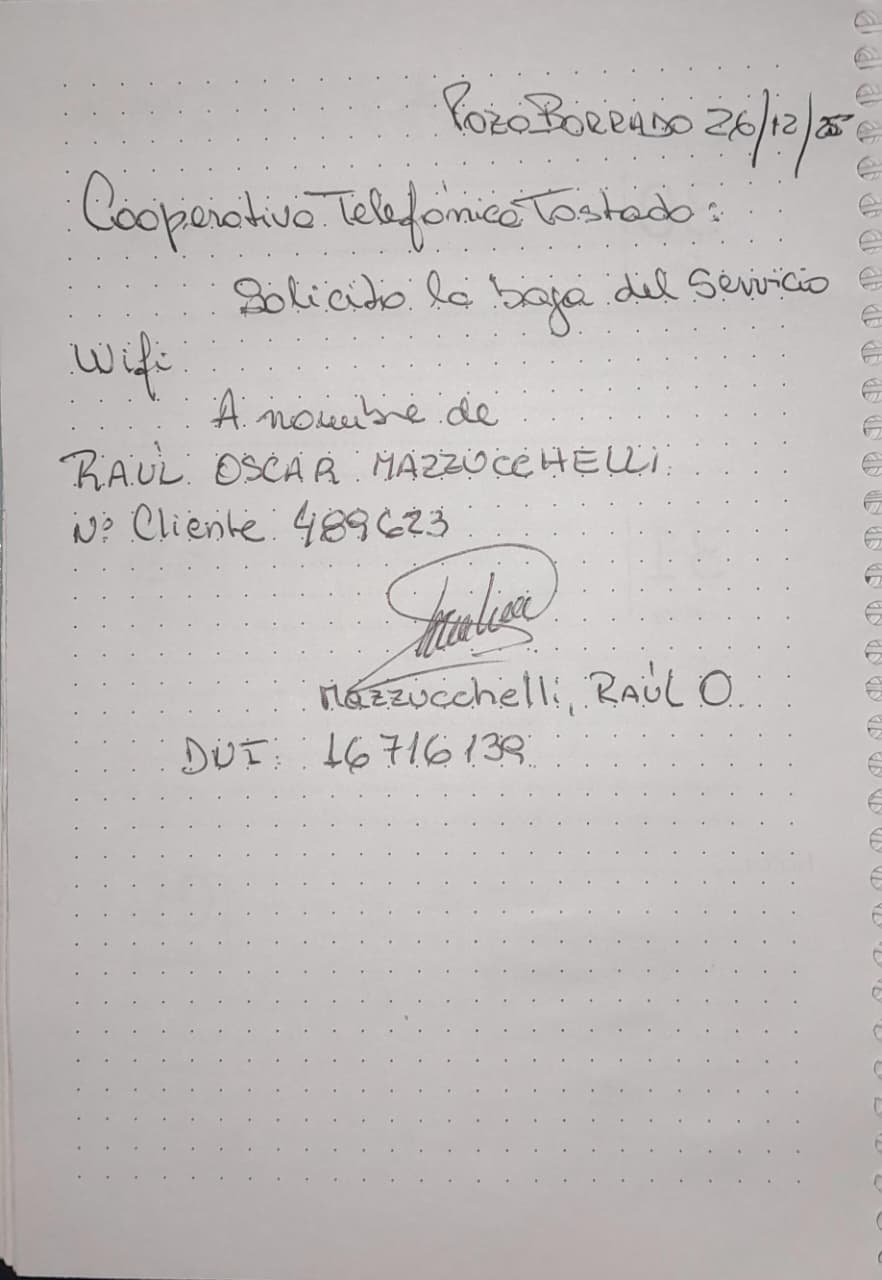 Pozo Borrado 26/12/25
Cooperativa Telefónica Tostado:
Solicito la baja del Servicio
Wifi
A nombre de
RAÚL OSCAR MAZZUCCHELLI
Nº Cliente 489623
Mazzucchelli, RAÚL O
DUI: 16716139